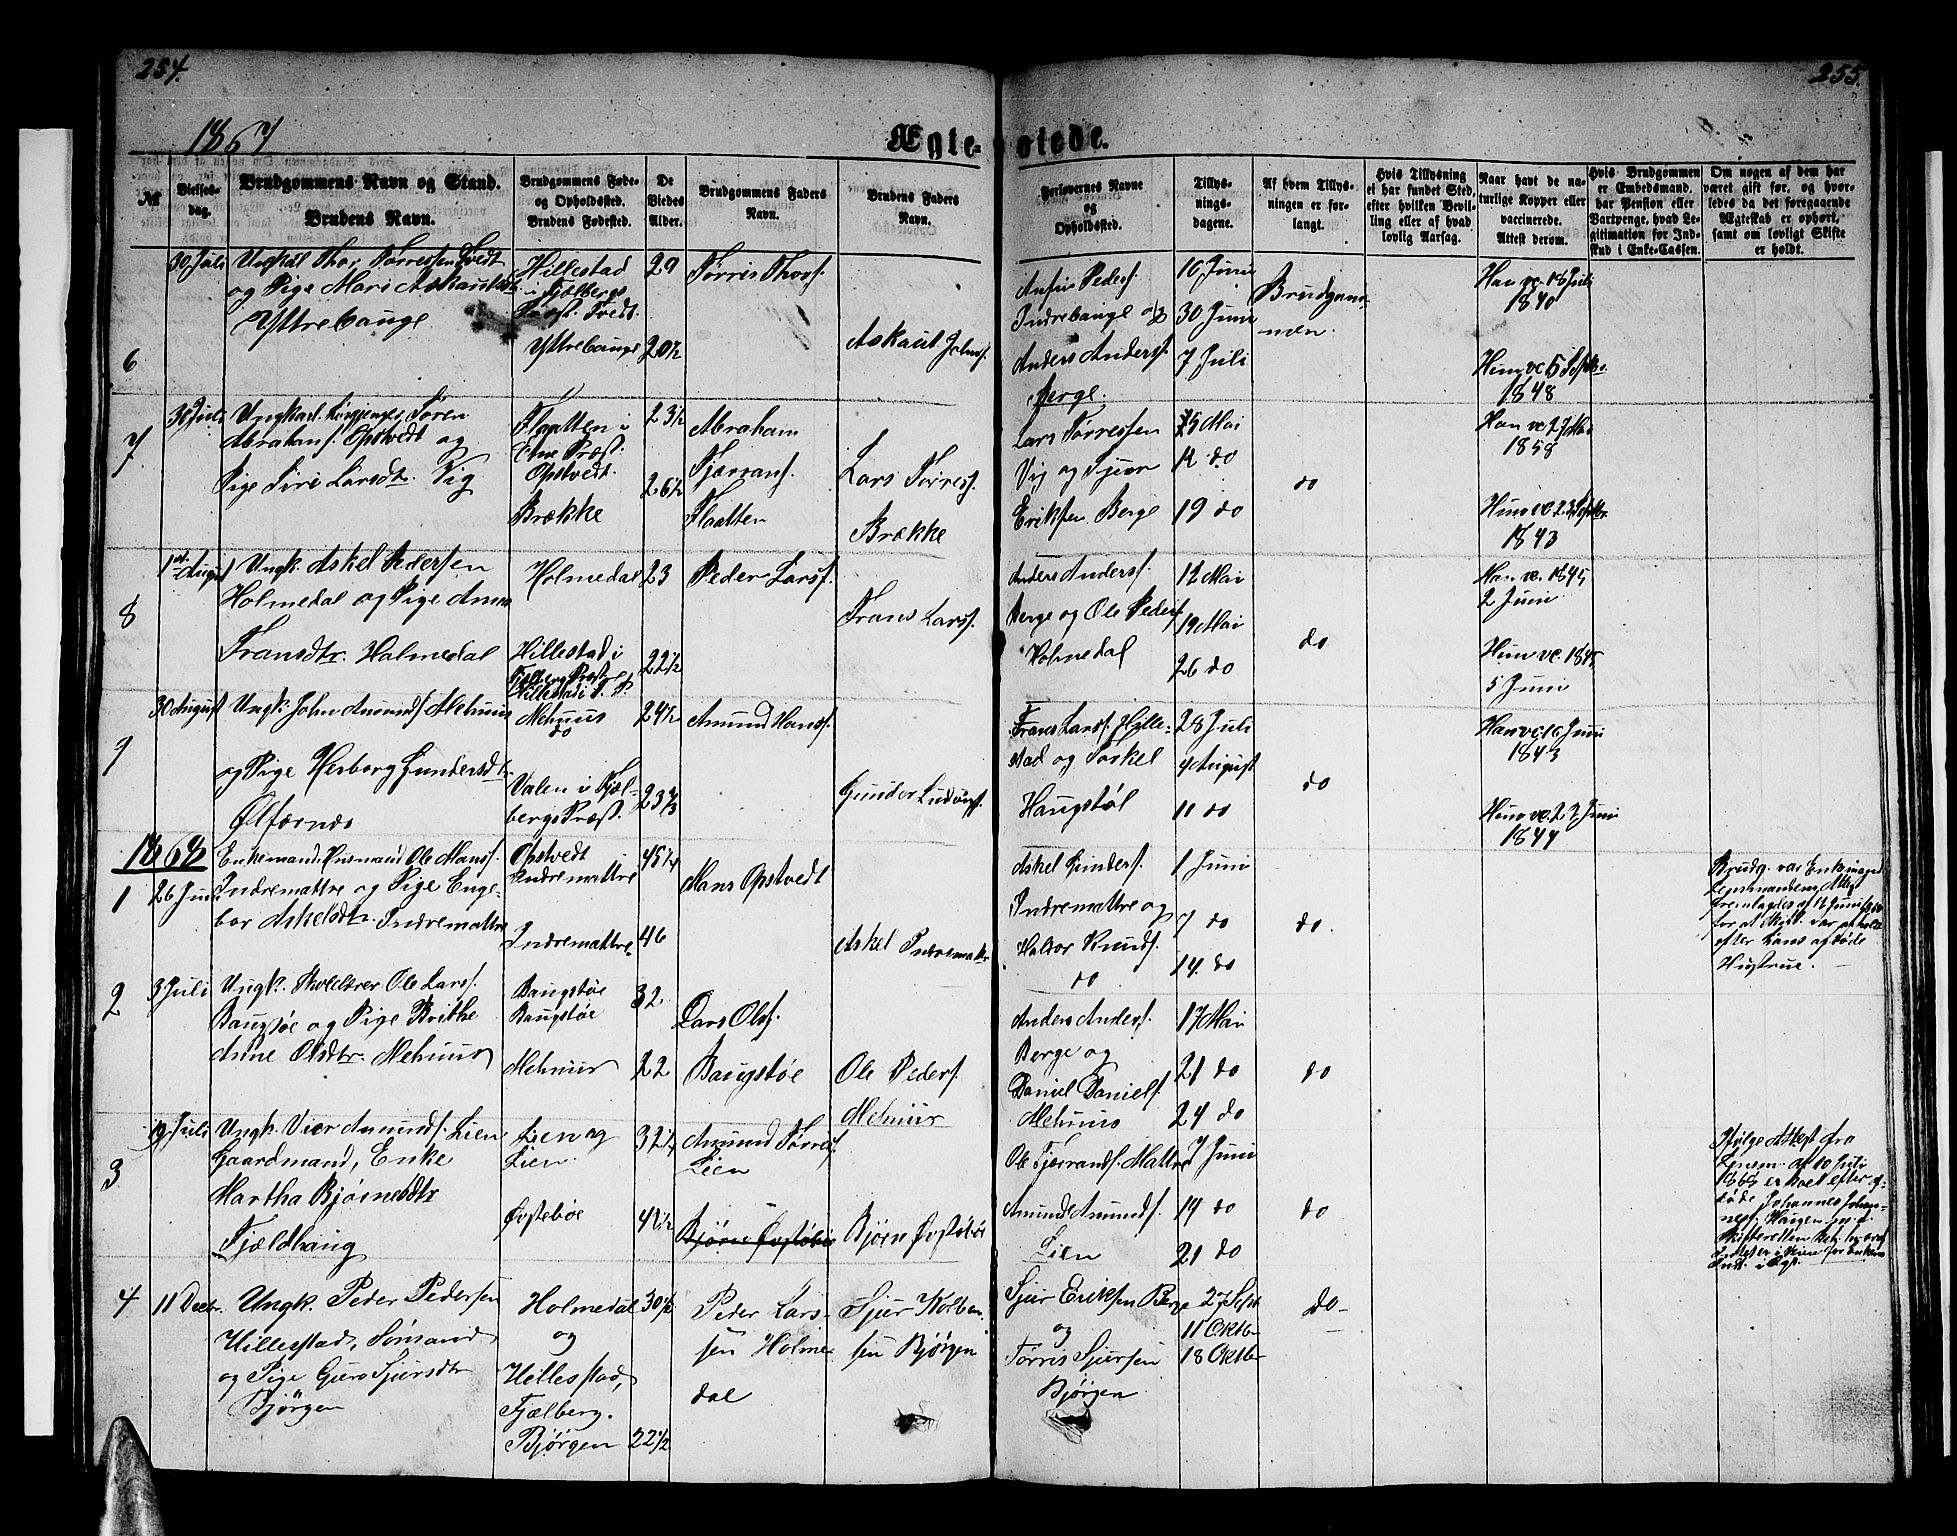 254.
255.
1867
Ægteviede.
№
Vielses-
dag.
Brudgommens Navn og Stand.
Brudens Navn.
Brudgommens Føde-
og Opholdssted.
Brudens Fødested.
De
Viedes
Alder.
Brudgommens Faders
Navn.
Brudens Faders
Navn.
Forlovernes Navne
og
Opholdssted.
Tillys-
nings-
dagene.
Af hvem Tillys-
ningen er for-
langt.
Hvis Tillysning
ei har fundet Sted,
efter hvilken Bevil-
ling eller af hvad
lovlig Aarsag.
Naar havt de na-
turlige Kopper eller
vaccinerede.
Attest derom.
Hvis Brudgommen
er Embedsmand,
har Pension eller
Vartpenge, hvad Le-
gitimation for Ind-
skud i Enke-Cassen.
Om nogen af dem har
været gift før, og hvor-
ledes da det foregaaende
Ægteskab er ophørt,
samt om lovligt Skifte
er holdt.
6
30 Juli
Ungkarl Thor Tørressen Tvedt
og Pige Mari Askautsdtr
Yttrebauge
Hillestad
i Fjælbergs
Præst. Tvedt.
Yttrebauge
29
20½
Tørris Thors.
Askaut Johns.
Anfin Peders.
Indrebauge og
Anders Anders.
Berge.
16 Juni
30 Juni
7 Juli
Brudgom-
men.
Han vc. 18 Juli
1840
Hun vc 5 Septbr.
1848
7
30 Juli
Ungkarl Søren
Abrahams. Opstvedt og
Pige Siri Larsdtr. Vig
Flaatten i
Etne Præst.
Opstvedt.
Brække
23½
26½
Abraham
Fjærrans.
Flaatten
Lars Tørress.
Brække
Lars Tørressen
Vig og Sjur
Eriksen Berge
5 Mai
12 do
19 do
do
Han vc 27 Mai
1858
Hun vc. 23 Septbr
1843
8
1st August
Ungk. Askel Pedersen
Holmedal og Pige Anna
Fransdtr. Holmedal
Holmedal
Hillestad i
Fjælbergs Præst.
23
22½
Peder Lars.
Frans Larss.
Anders Anders.
Berge og Ole Peders.
Holmedal
12 Mai
19 Mai
26 do
do
Han vc. 1845
2 Juni
Hun vc. 1845
5 Juni
9
30 August
Ungk. John Amunds. Mehuus
og Pige Herborg Gundersdtr
Ølfærnes
Hillestad i F. P.
Mehuus
do
Valen i Fjæl-
bergs Præst.
24½
23⅔
Amund Hans.
Gunder Ludvigs.
Frans Lars. Hille-
stad og Torkel
Haugstøl
28 Juli
4 August
11 do
do
Han vc 16 Juni
1843
Hun vc. 27 Juni
1844
1868
1
26 Juni
Enkemand Huusmand Ole Hans.
Indremattre og Pige Enge-
bor Askelsdtr. Indremattre
Opstvedt
Indremattre
Indremattre
45¼
46
Hans Opstvedt
Askel Indremattre
Askel Gunders.
Indremattre og
Halvor Knuds.
do
1 Juni
7 do
14. do
do.
Brudg. var Enkemand
Lensmandens Attest
fremlagdes af 12 Juni 1868
for at Skift. var afholdt
efter hans afdøde
Hustrue.
2
3 Juli
Ungk. Skoleholder Ole Lars.
Baugstøe og Pige Brithe
Anne Olsdtr. Mehuus
Baugstøe
Baugstøe
Mehuus
32
22
Lars Ols.
Baugstøe
Ole Peders.
Mehuus
Anders Anders.
Berge og
Daniel Daniels.
Mehuus
17 Mai
21 do
24 do
do
3
19 Juli
Ungk. Vier Amunds. Lien
Gaardmand, Enke
Martha Bjørnesdtr
Fjældhaug
Lien og
Lien.
Øvstebøe
32¼
42½
Amund Tørres.
Lien
Bjørne Øvstebøe
Bjørn Øvstebøe
Ole Fjerrands. Mattre
Amund Amunds.
Lien
7 Juni
14 do
21 do
do
Ifølge Attest fra
Lensm. af 10 Juli
1868 er Boet efter af-
døde Johannes Johan-
nes. Haugen
4
11 Decbr.
Ungk. Peder Pedersen
Hillestad, Sømand
og Pige Guro Sjursdtr
Bjørgen
Holmedal
og
Hillestad,
Fjælberg.
Bjørgen
30½
22½
Peder Lars-
sen Holme-
dal
Sjur Kolben-
sen Bjørgen
Sjur Eriksen Berge
og
Tørris Sjursen
Bjørgen
27 Sept
11 Oktbr
18 Oktbr
Do